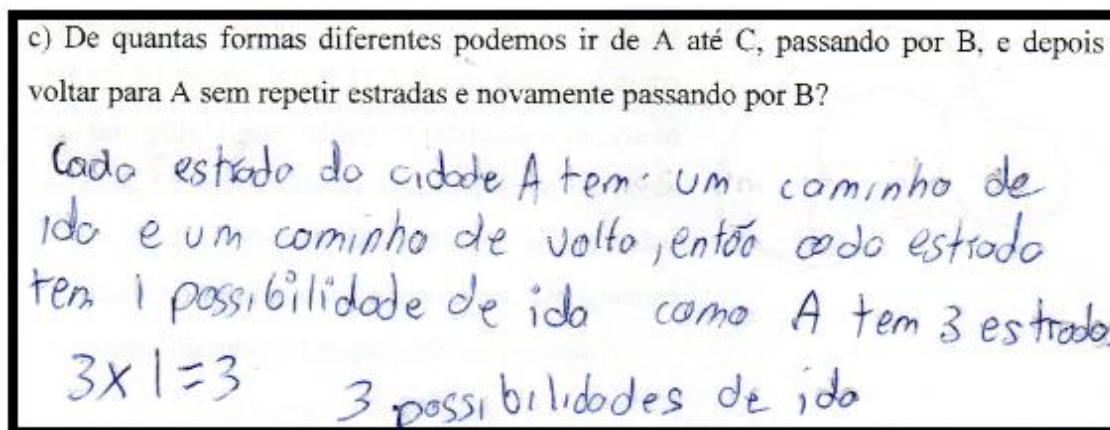 c) De quantas formas diferentes podemos ir de A até C, passando por B, e depois
voltar para A sem repetir estradas e novamente passando por B?
Cada estrada da cidade A tem um caminho de
ida e um caminho de volta, então cada estrada
tem 1 possibilidade de ida como A tem 3 estradas
3x1=3 3 possibilidades de ida